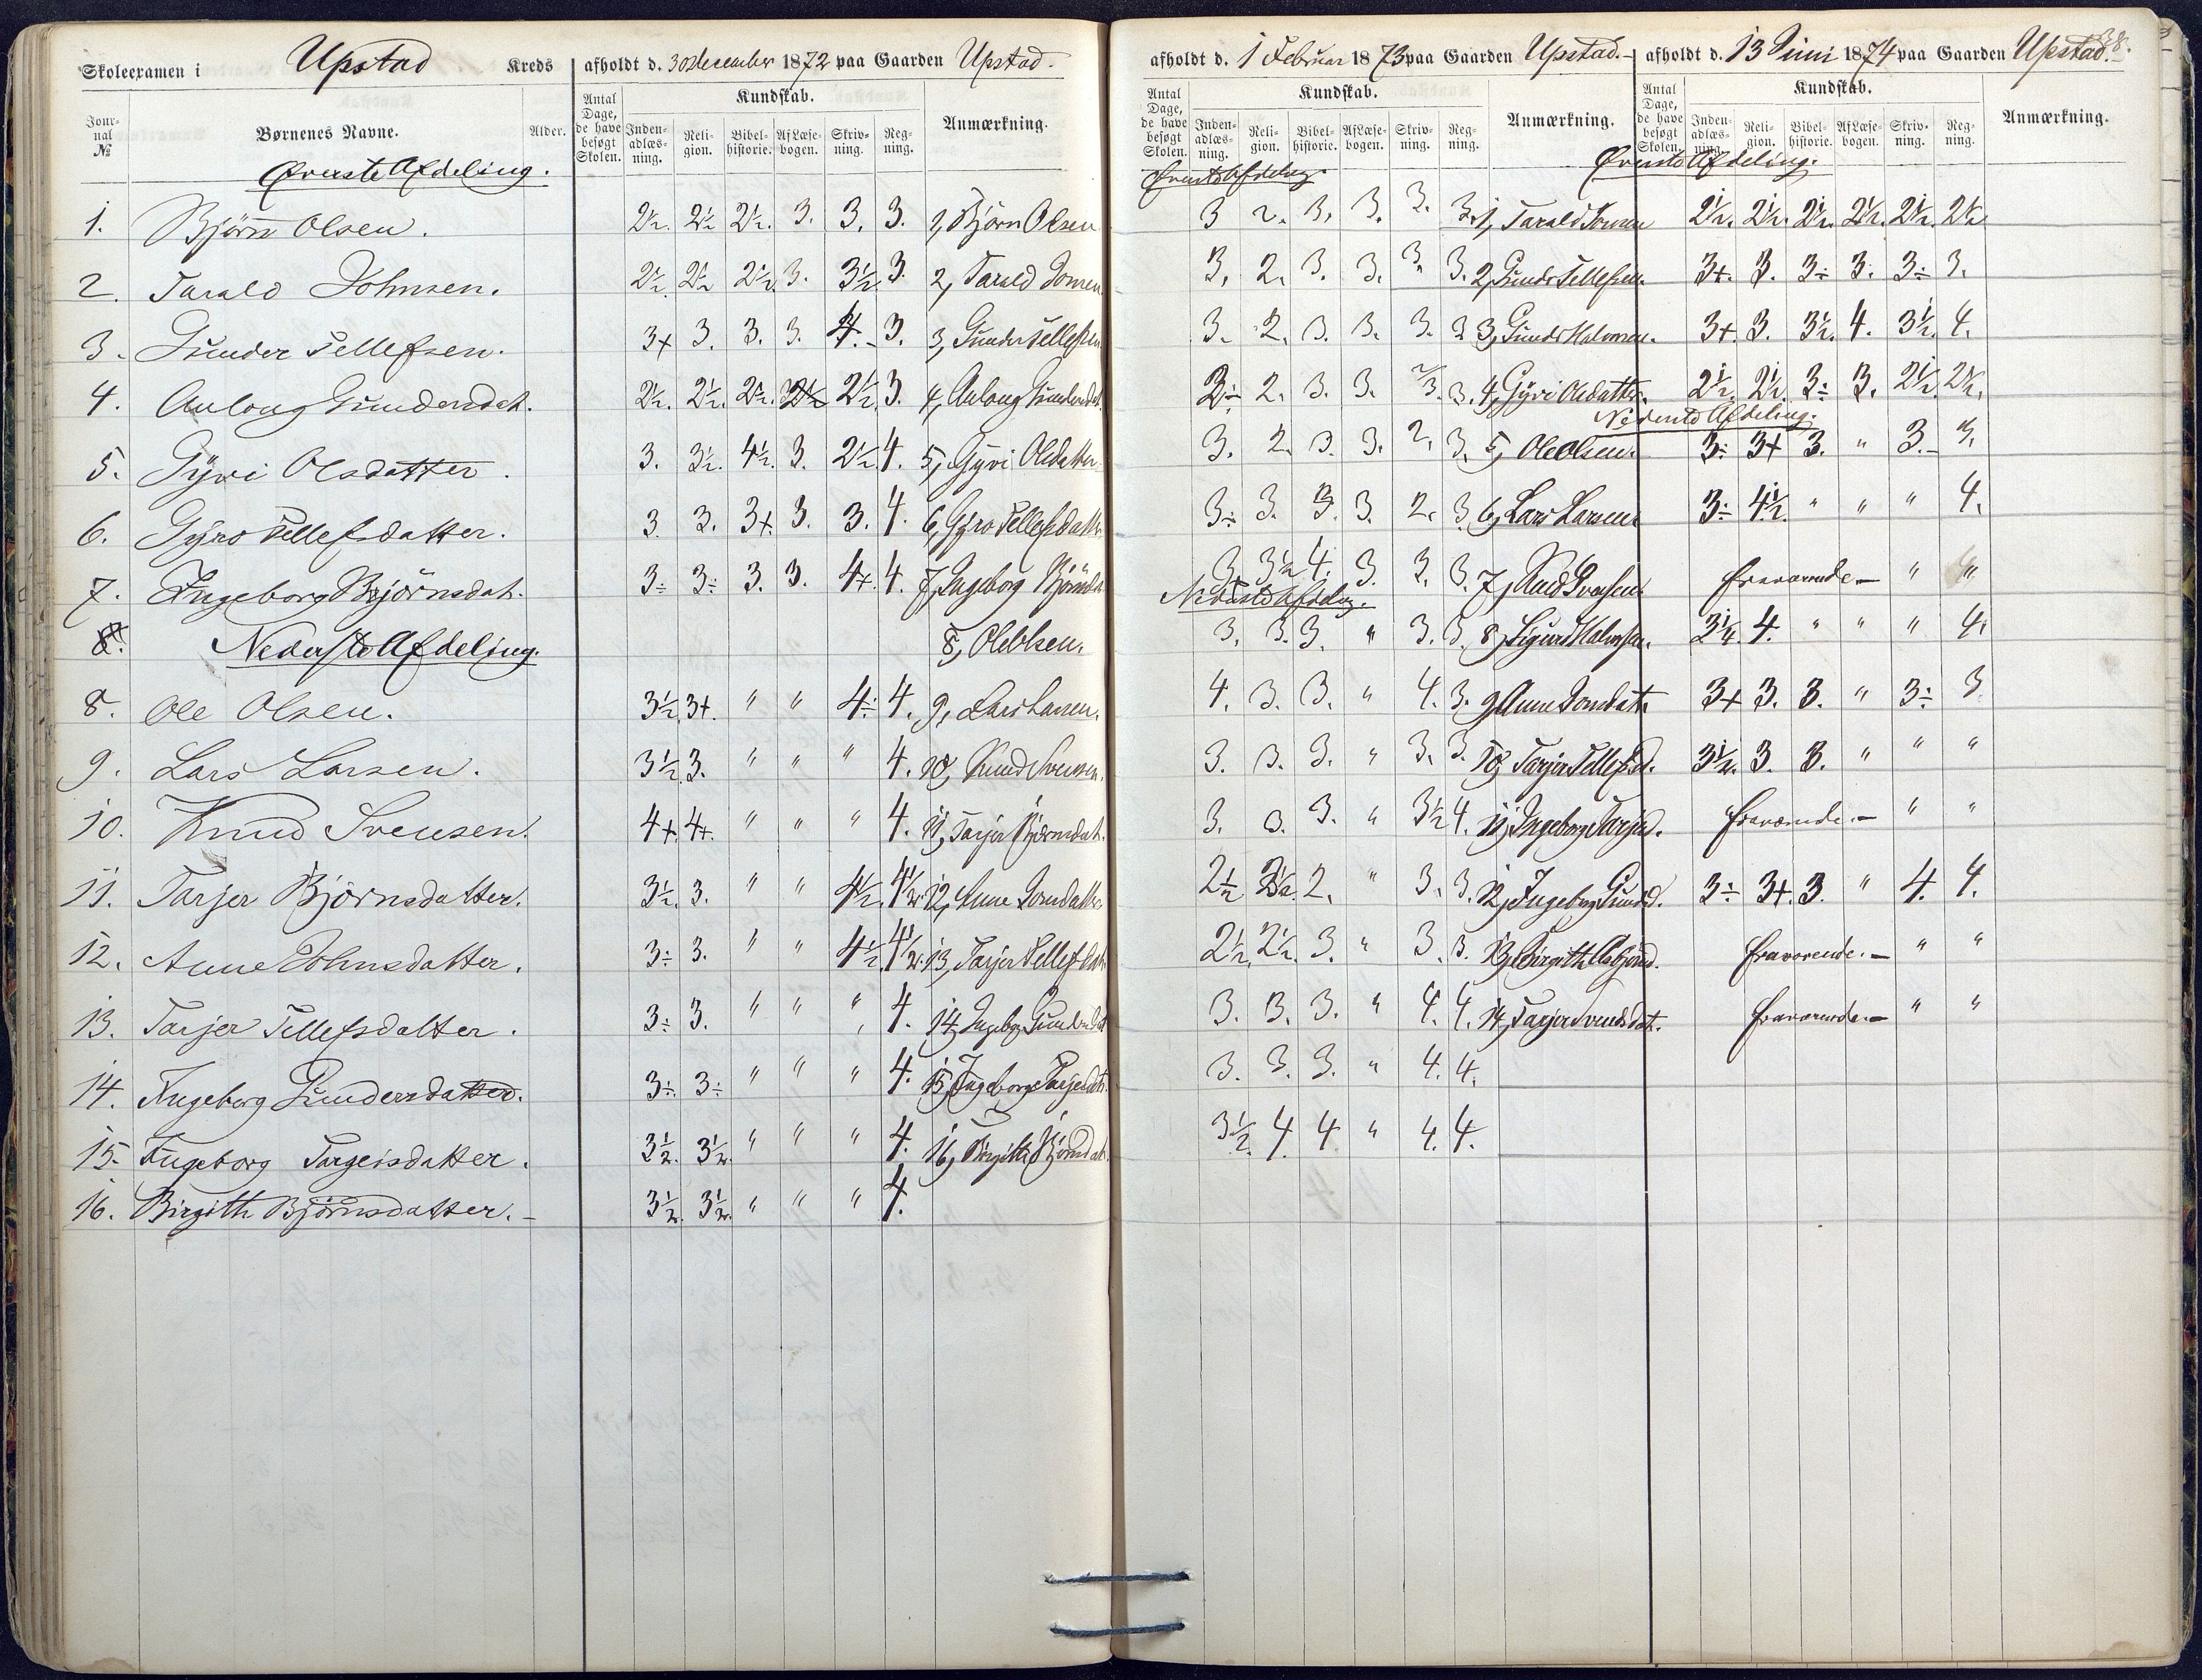 Skoleexamen i Upstad Kreds afholdt d. 30 december 1872 paa Gaarden Upstad.
Jour-nal № Børnenes Navne. Alder. Antal Dage, de have besøgt Skolen. Kundskab. Inden-adlæs-ning. Reli-gion. Bibel-historie. Af Læse-bogen. Skriv-ning. Reg-ning. Anmærkning.
Øverste Afdeling.
1. Bjørn Olsen. 2½. 2½ 2½. 3. 3. 3. 1, Bjørn Olsen
2. Tarald Johnsen. 2½ 2½ 2½ 3. 3½ 3. 2, Tarald Jonsen
3. Gunder Tellefsen. 3+ 3. 3. 3. 4.- 3. 3, Gunder Tellefsen
4. Aulong Gundersdat. 2½. 2½. 2½. 2½ 2½. 3. 4, Aulong Gundersdat.
5. Gyri Olsdatter. 3. 3½. 4½. 3. 2½. 4. 5, Gyvi Olsdatter
6. Gyro Tellefsdatter. 3. 3. 3+. 3. 3. 4. 6, Gyro Tellefsdatter
7. Ingeborg Bjørnsdat. 3÷ 3÷ 3. 3. 4+. 4. 7, Ingeborg Bjørnsdat
8. Nederste Afdeling. 8, Ole Olsen.
8. Ole Olsen. 3½. 3+. " " 4÷ 4. 9, Lars Larsen.
9. Lars Larsen. 3½. 3. " " " 4. 10, Knud Svensen.
10. Knud Svensen. 4+. 4+. " " " 4. 11, Tarjer Bjørnsdat.
11. Tarjer Bjørnsdatter. 3½. 3. " " 4½. 4½. 12, Anne Jonsdatter
12. Anne Johnsdatter. 3÷ 3. " " 4½. 4½. 13, Tarjer Tellefsdat.
13. Tarjer Tellefsdatter. 3÷ 3. " " " 4. 14, Ingeborg Gundersdat
14. Ingeborg Gundersdatter. 3÷ 3÷ " " " 4. 15, Ingeborg Tarjeisdat.
15. Ingeborg Targeisdatter. 3½. 3½. " " " 4. 16, Birgith Bjørnsdat.
16. Birgith Bjørnsdatter. 3½. 3½. " " " 4.
38.
afholdt d. 1 Februar 1873 paa Gaarden Upstad. afholdt d. 13 Juni 1874 paa Gaarden Upstad.
Antal Dage, de have besøgt Skolen. Kundskab. Inden-adlæs-ning. Reli-gion. Bibel-historie. Af Læse-bogen. Skriv-ning. Reg-ning. Anmærkning. Antal Dage, de have besøgt Skolen. Kundskab. Inden-adlæs-ning. Reli-gion. Bibel-historie. Af Læse-bogen. Skriv-ning. Reg-ning. Anmærkning.
Øverste Afdeling. Øverste Afdeling.
3 2. 3. 3. 3. 3. 1, Tarald Jonsen 2½. 2½. 2½. 2½. 2½. 2½
3. 2. 3. 3. 3. 3. 2, Gunder Tellefsen. 3+. 3. 3÷ 3. 3÷ 3.
3. 2. 3. 3. 3. 3 3, Gunder Halvorsen. 3+. 3. 3½. 4. 3½. 4.
3÷ 2. 3. 3. 2/3. 3. 4, Gyri Olsdatter. 2½. 2½. 3÷ 3. 2½. 2½.
Nederste Afdeling.
3. 2. 3. 3. 2. 3. 5, Ole Olsen. 3÷ 3+ 3. " 3.- 3.
3÷ 3. 3. 3. 2. 3. 6, Lars Larsen. 3÷ 4½. " " " 4.
3. 3½ 4. 3. 3. 3. 7, Knud Svensen fraværende - " "
Nederste Afdeling.
3. 3. 3. " 3. 3. 8, Sigurd Halvorsen. 3¼. 4. " " " 4.
4. 3. 3. " 4. 3. 9, Anne Jonsdat. 3+ 3. 3. " 3÷ 3
3. 3. 3. " 3. 3. 10, Tarjer Tellefsd. 3½. 3. 3. " " "
3. 3. 3. " 3½ 4. 11, Ingeborg Tarjeisd. fraværende. - " "
2½ 2½. 2. " 3. 3. 12, Ingeborg Gundersd. 3÷ 3+. 3. " 4. 4.
2½. 2½. 3. " 3. 3. 13, Birgith Asbjørnsd. fraværende. - " "
3. 3. 3. " 4. 4. 14, Tarjer Svendsdat. fraværende. - " "
3. 3. 3. " 4. 4.
3½. 4. 4 " 4. 4.